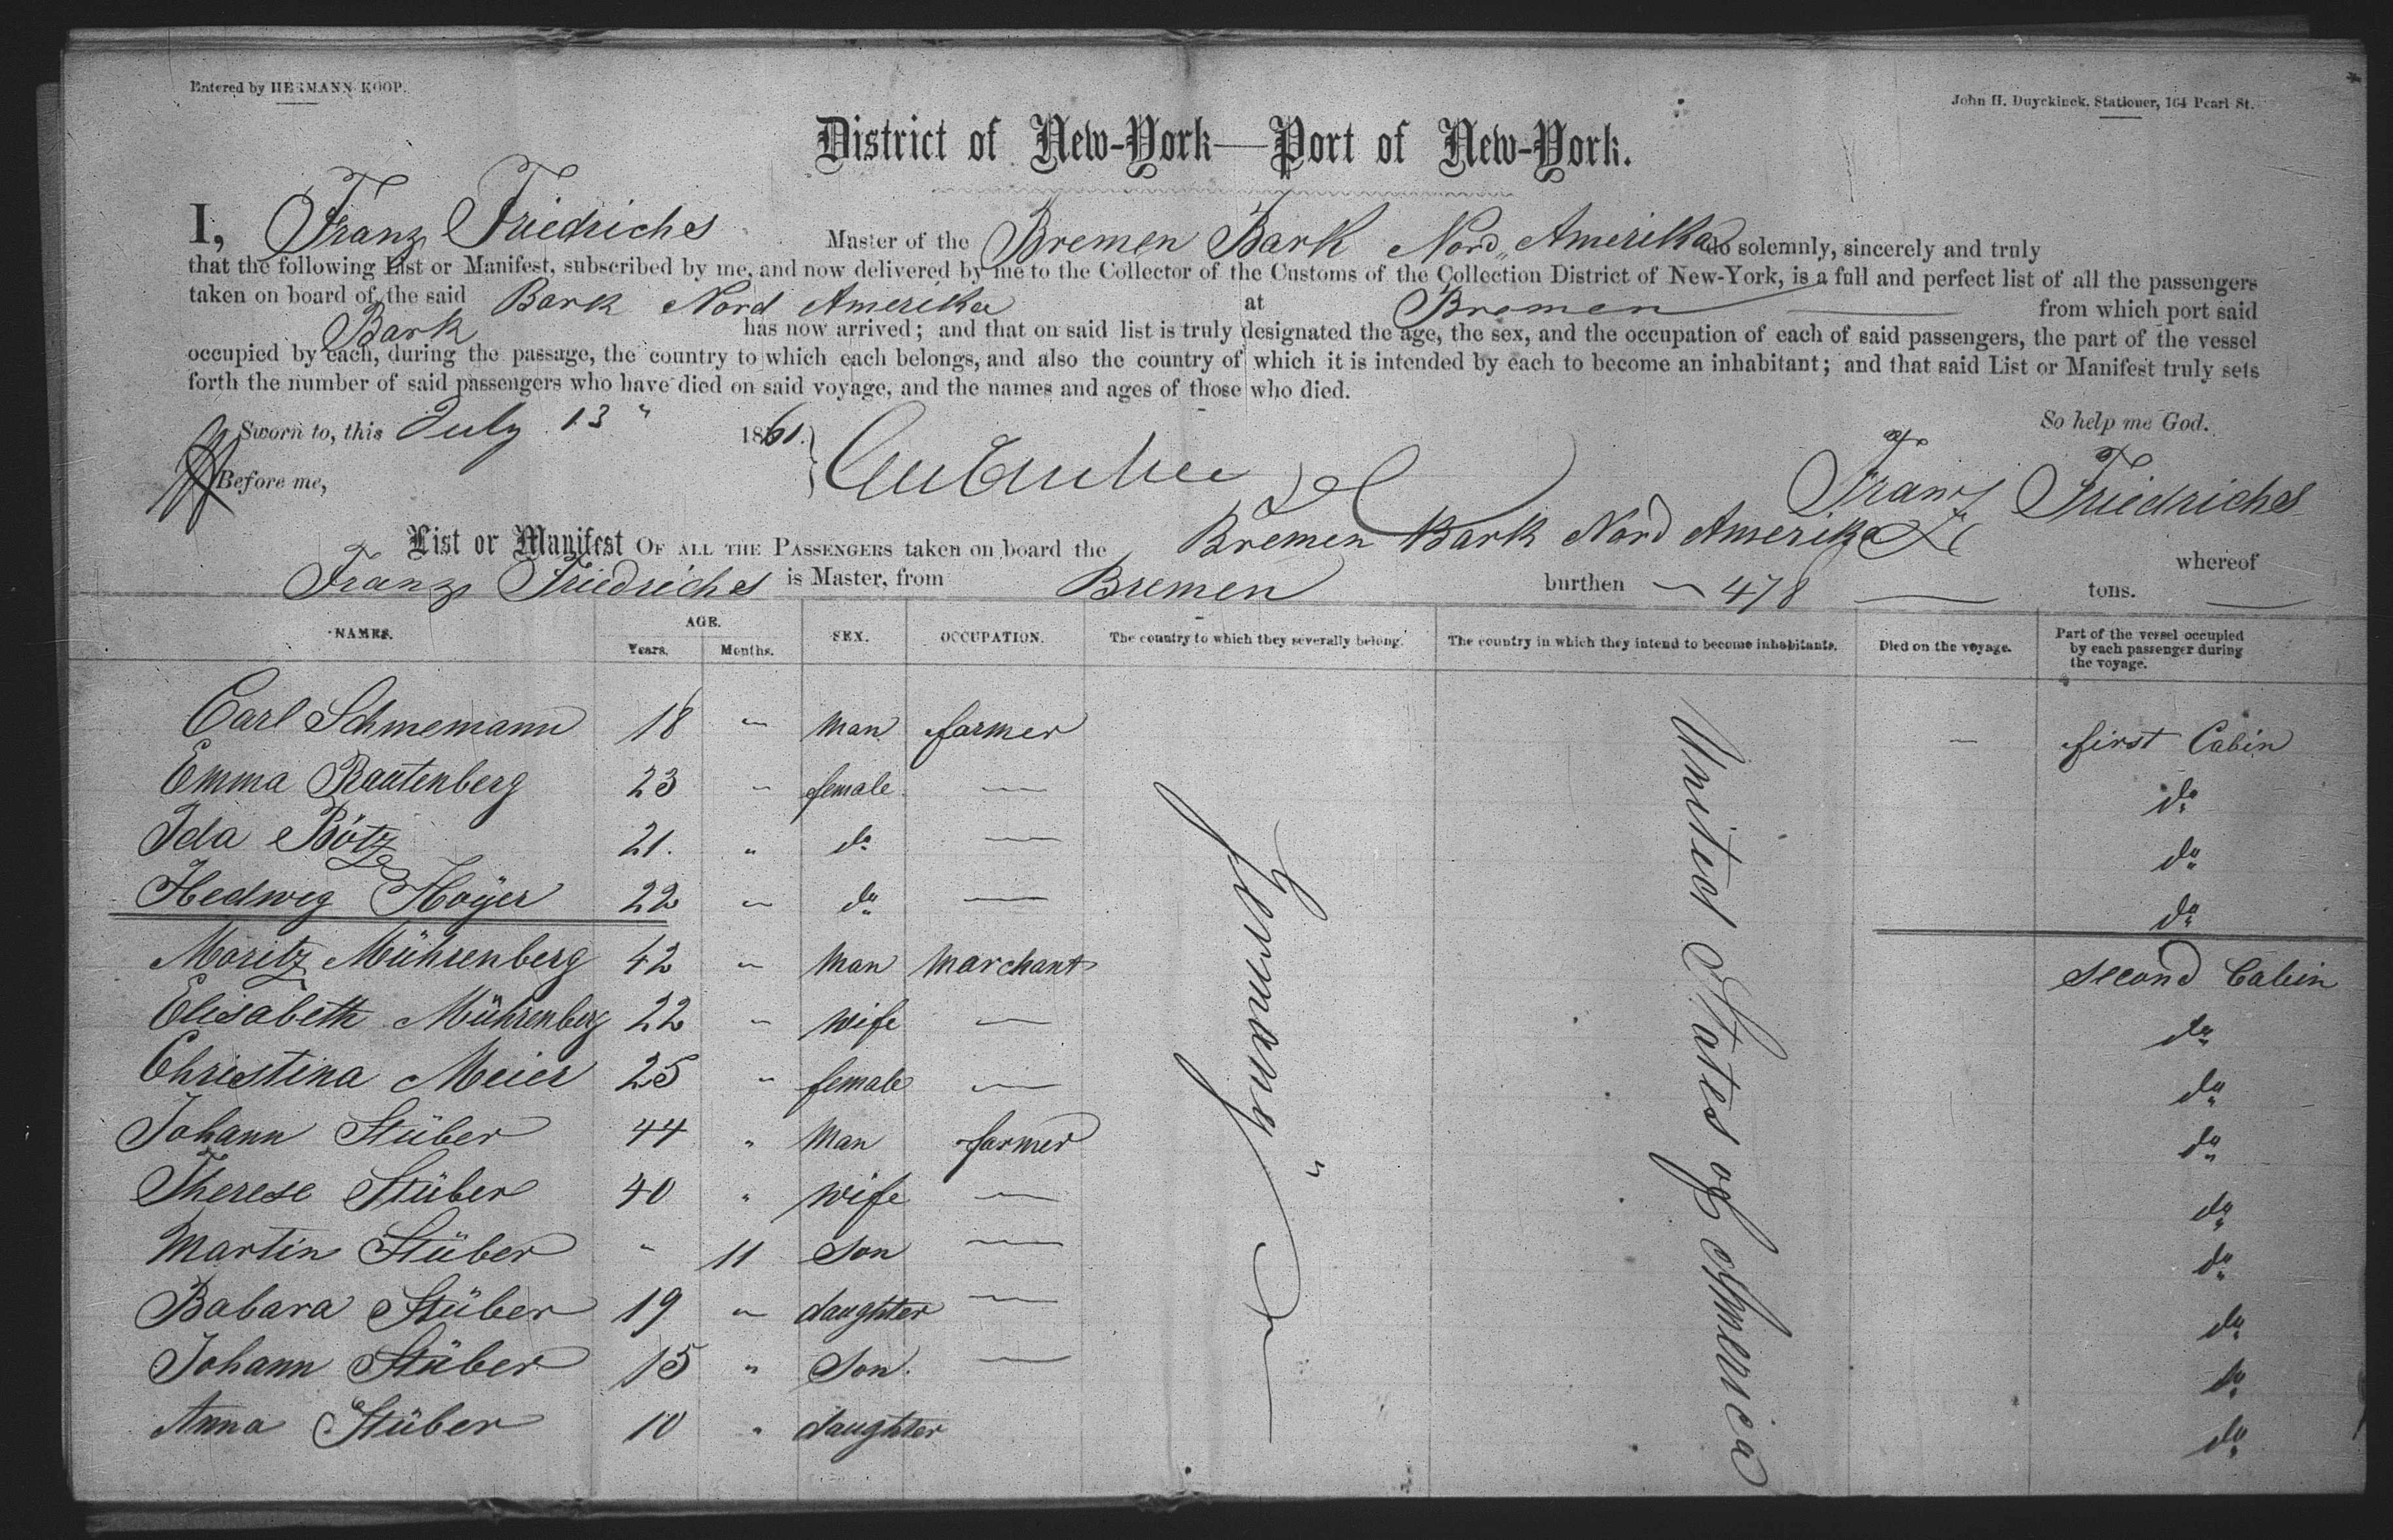 Entered by HERMANN KOOP.
John H. Duyckinck, Stationer, 164 Pearl St.
District of New-York—Port of New-York.
I, Franz Friedrichs Master of the Bremen Bark Nord Amerika do solemnly, sincerely and truly
that the following List or Manifest, subscribed by me, and now delivered by me to the Collector of the Customs of the Collection District of New-York, is a full and perfect list of all the passengers
taken on board of the said Bark Nord Amerika at Bremen from which port said
Bark has now arrived; and that on said list is truly designated the age, the sex, and the occupation of each of said passengers, the part of the vessel
occupied by each, during the passage, the country to which each belongs, and also the country of which it is intended by each to become an inhabitant; and that said List or Manifest truly sets
forth the number of said passengers who have died on said voyage, and the names and ages of those who died.
Sworn to, this July 13 " 1861. So help me God.
Before me, Franz Friedrichs
List or Manifest OF ALL THE PASSENGERS taken on board the Bremen Bark Nord Amerika whereof
Franz Friedrichs is Master, from Bremen burthen 478 tons.
NAMES. AGE. Years. Months. SEX. OCCUPATION. The country to which they severally belong. The country in which they intend to become inhabitants. Died on the voyage. Part of the vessel occupied by each passenger during the voyage.
Carl Schmemann 18 " man farmer — first Cabin
Emma Rautenberg 23 " female — do
Ida Bötz 21. " do — do
Hedweg Hoÿer 22 " do — do
Moritz Mührenberg 42 " man marchant second Cabin
Elisabeth Mührenberg 22 " wife — do
Christina Meier 25 " female — do
Johann Stüber 44 " man farmer do
Therese Stüber 40 " wife — do
Martin Stüber " 11 son — do
Babara Stüber 19 " daughter — do
Johann Stüber 15 " son. — do
Anna Stüber 10 " daughter do
Germany
United States of America